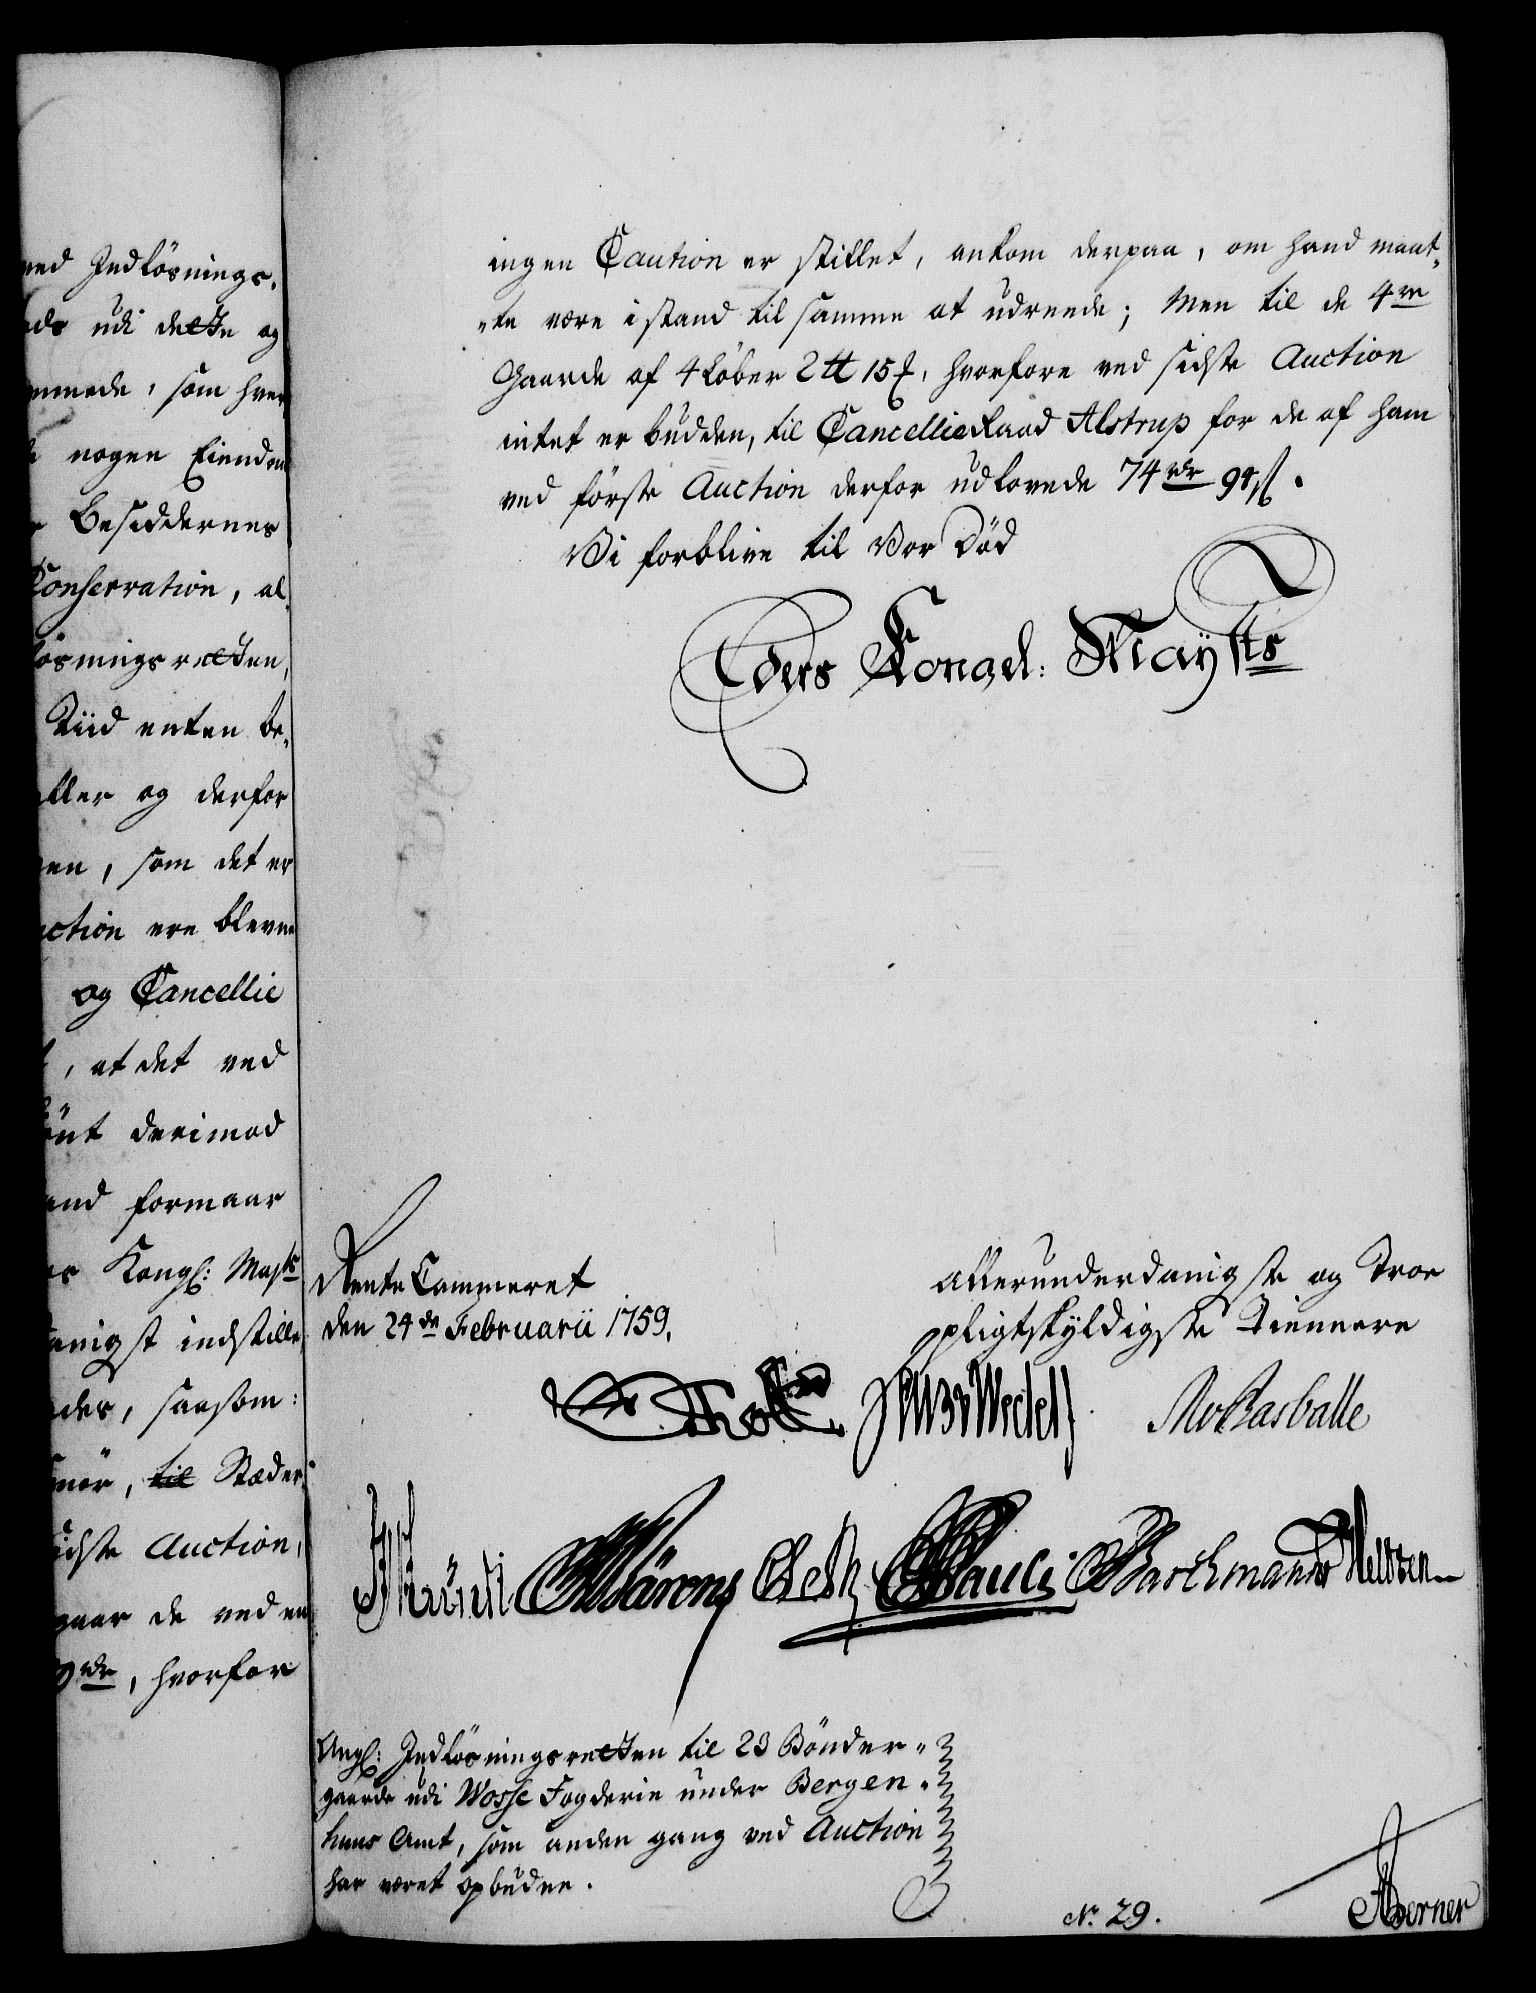 ved Indløsnings-
udi detten og
som hver
nogen Eiendom
Besiddernes
Conservation, al-
løsningsretten,
Tiid enten be-
eller og derfor
som det er
Auction ere blevne
og Cancellie
at det ved
derimod
formaar
Kongl: Mayts
indstille
saasom:
til Stæder
sidste Auction,
de ved en
rdr, hvorfor
ingen Caution er stillet, ankom derpaa, om hand maat-
-te være i stand til samme at udreede; Men til de 4re
Gaarde af 4 Løber 2 tt 15 f, hvorfore ved sidste Auction
intet er budden, til CancellieRaad Alstrup for de af ham
ved første Auction derfor udlovede 74 rdr 94 s.
Vi forblive til Vor Död
Eders Kongel: Maytts
Rente Cammeret
den 24de Februarii 1759.
allerunderdanigste og Troe
pligtskyldigste Tiennere
Wedel
Pauli
Berner
Angl: Indløsningsretten til 23 Bönder-
gaarde udi Wosse Fogderie under Bergen-
huus Amt, som anden gang ved Auction
har været opbudne.
No. 29.